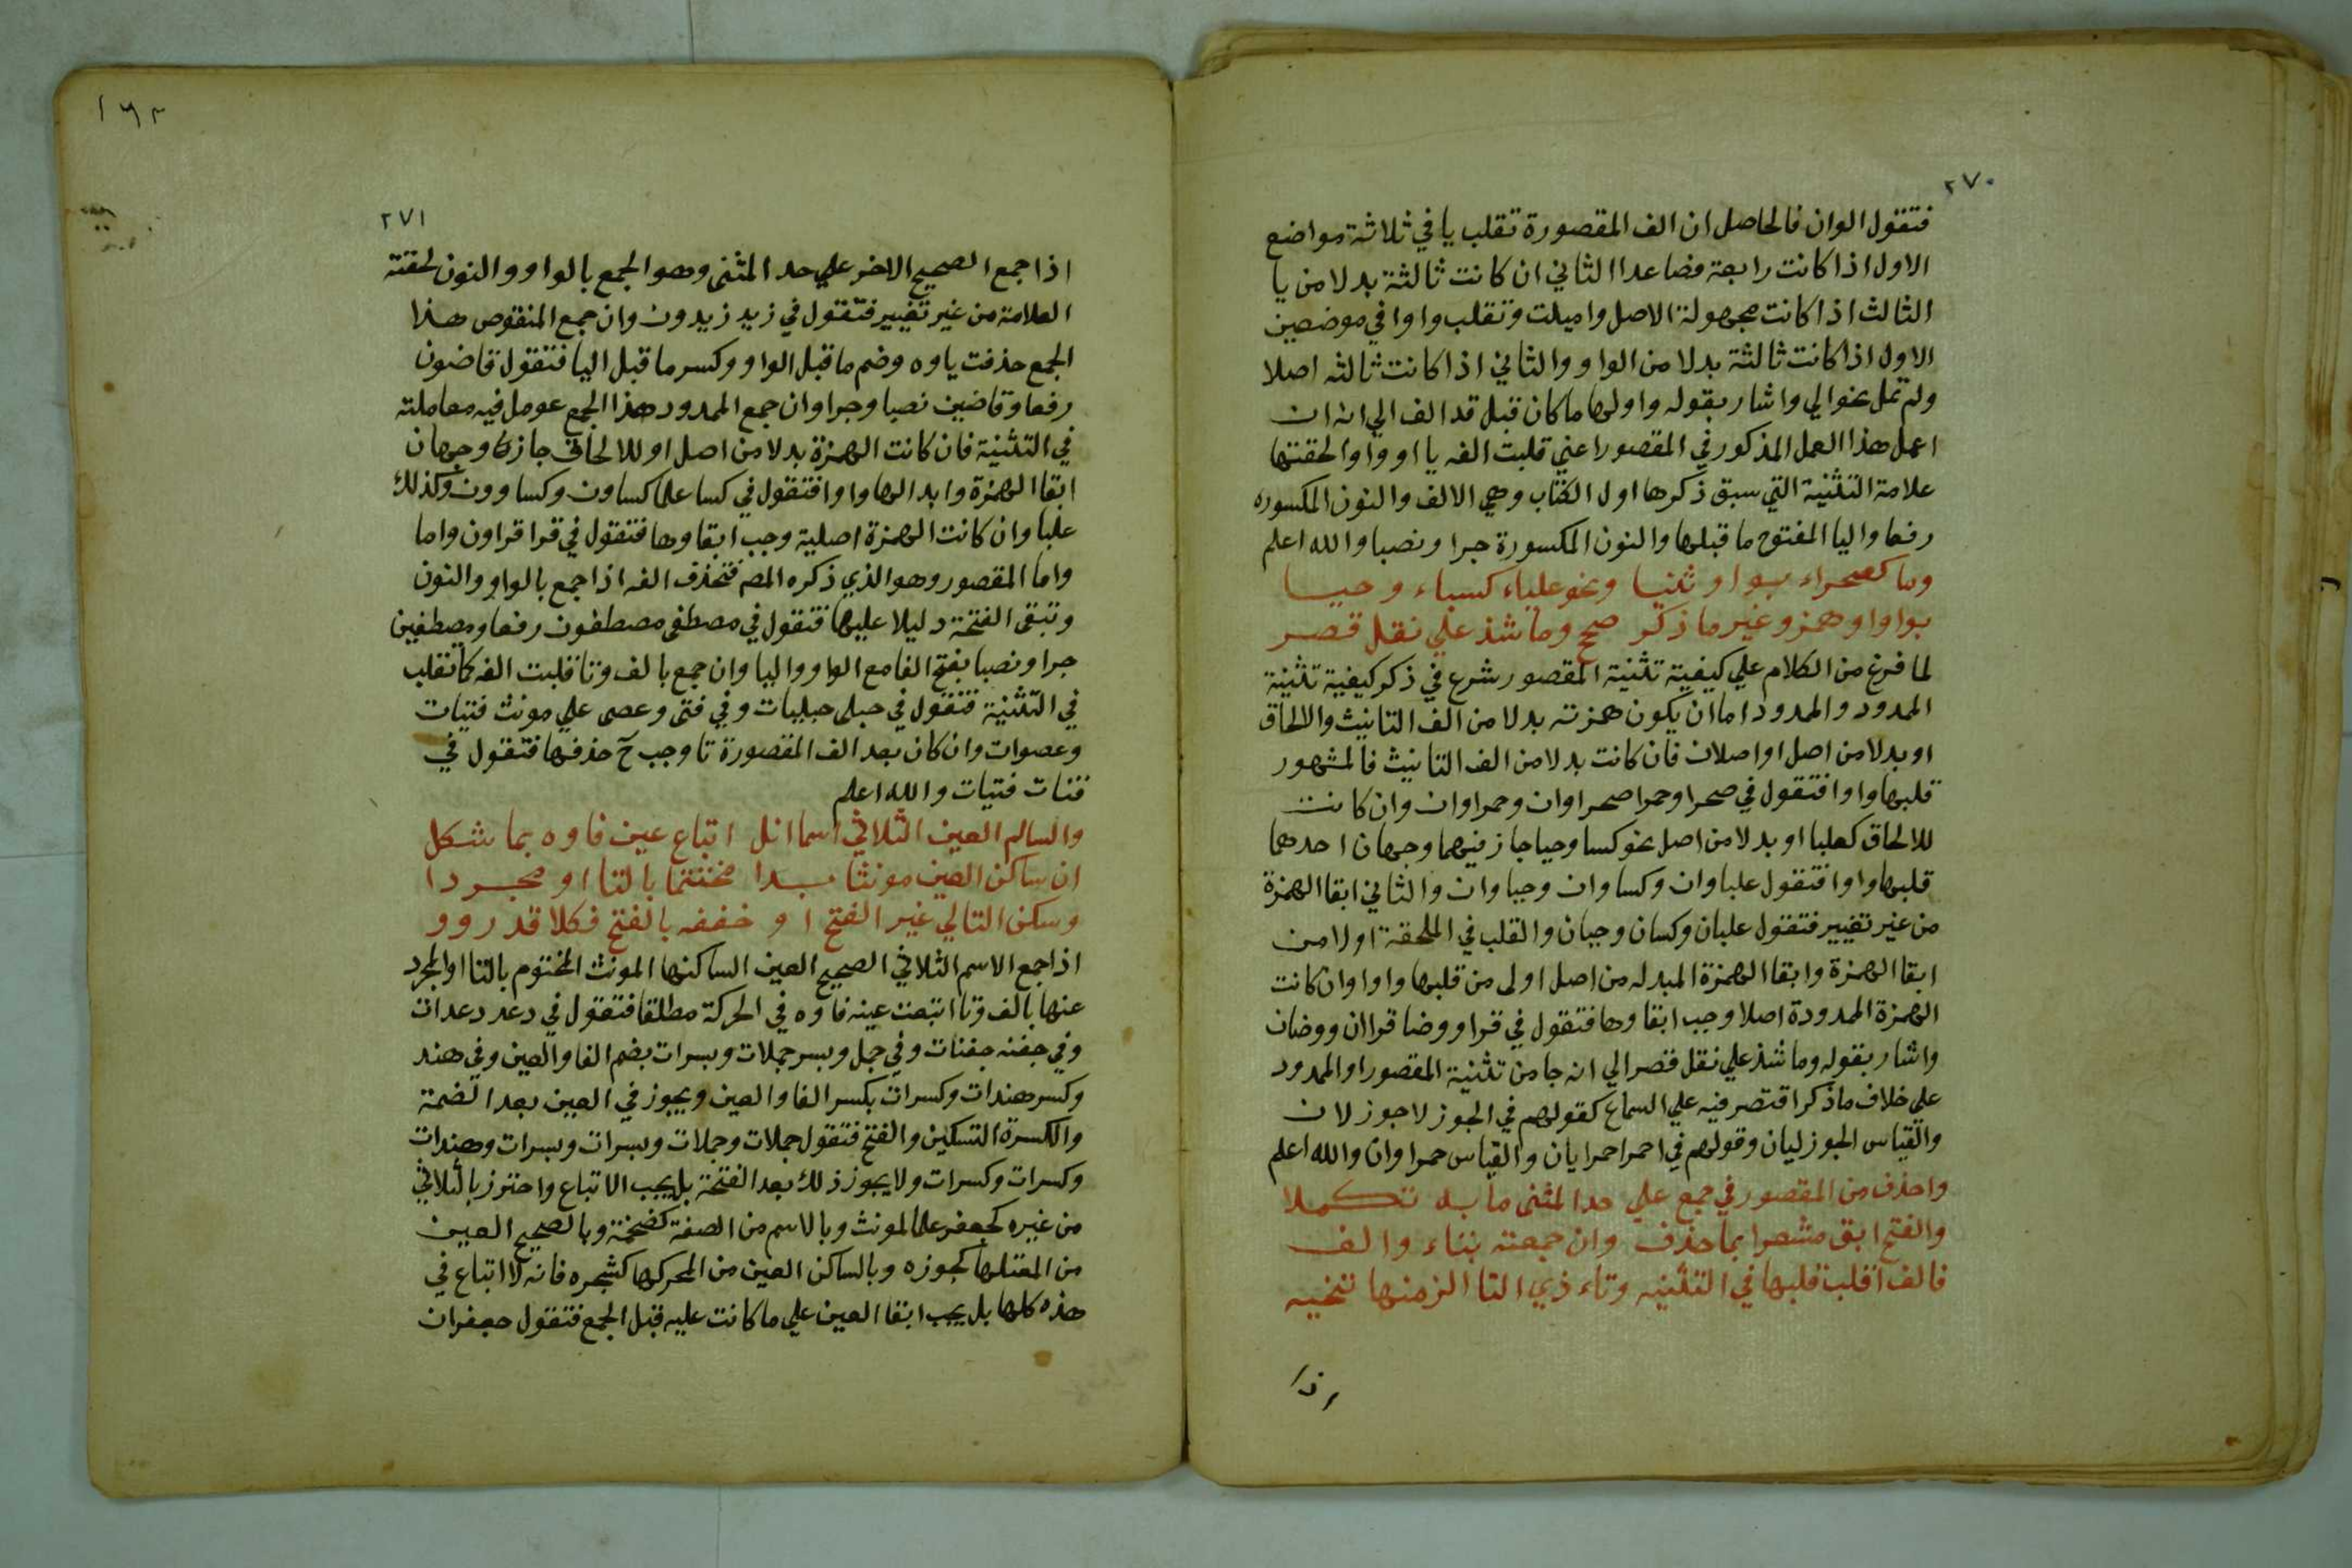 ٢٧٠
فتقول الوان فالحاصل ان الف المقصورة تقلب يا في ثلاثة مواضع
الاول اذا كانت رابعة فصاعدا الثاني ان كانت ثالثة بدلا من يا
الثالث اذا كانت مجهولة الاصل واميلت وتقلب واوا في موضعين
الاول اذا كانت ثالثة بدلا من الواو والثاني اذا كانت ثالثه اصلا
ولم تمل نحو الي واشار بقوله واولها ما كان قبل قد الف الي انه ان
اعمل هذا العمل المذكور في المقصور اعني قلبت الفه يا او واوا لحقتها
علامة التثنية التي سبق ذكرها اول الكتاب وهي الالف والنون المكسوره
رفعا واليا المفتوح ما قبلها والنون المكسورة جرا ونصبا والله اعلم
وما كصحراء بواو ثنيا ونحو علباء كساء وحيا
بواو او همز وغير ما ذكر صحح وما شذ علي نقل قصر
لما فرغ من الكلام علي كيفية تثنية المقصور شرع في ذكر كيفية تثنية
الممدود والممدود اما ان يكون همزته بدلا من الف التانيث والالحاق
او بدلا من اصل او اصلان فان كانت بدلا من الف التانيث فالمشهور
قلبها واوا فتقول في صحرا وحمرا صحراوان وحمراوان وان كانت
للالحاق كعلبا او بدلا من اصل نحو كسا وحيا جاز فيهما وجهان احدهما
قلبها واوا فتقول علباوان وكساوان وحياوان والثاني ابقا الهمزة
من غير تغيير فتقول علبان وكسان وحيان والقلب في الملحقة اولا من
ابقا الهمزة وابقا الهمزة المبدله من اصل اولى من قلبها واوا وان كانت
الهمزة الممدودة اصلا وجب ابقاوها فتقول في قرا ووضا قراان ووضان
واشار بقوله وما شذ علي نقل قصر الي انه جا من تثنية المقصور او الممدود
علي خلاف ما ذكر اقتصر فيه علي السماع كقولهم في الجوزلا جوزلان
والقياس الجوزليان وقولهم في احمرا حمرايان والقياس حمراوان والله اعلم
واحذف من المقصور في جمع علي حد المثنى ما به تكملا
والفتح ابق مشعرا بما حذف وان جمعته بتاء والف
فالالف اقلب قلبها في التثنيه وتاء ذي التا الزمنها تنحيه
اذا
١٦٣
٢٧١
اذا جمع الصحيح الاخر علي حد المثنى وهو الجمع بالواو والنون لحقته
العلامة من غير تغيير فتقول في زيد زيدون وان جمع المنقوص هذا
الجمع حذفت ياوه وضم ما قبل الواو وكسر ما قبل اليا فتقول قاضون
رفعا وقاضين نصبا وجرا وان جمع الممدود هذا الجمع عومل فيه معاملته
في التثنية فان كانت الهمزة بدلا من اصل او للالحاق جاز فيه وجهان
ابقا الهمزة وابدالها واوا فتقول في كسا علما كساون وكساوون وكذلك
علبا وان كانت الهمزة اصلية وجب ابقاوها فتقول في قرا قراون واما
واما المقصور وهو الذي ذكره المص فتحذف الفه اذا جمع بالواو والنون
وتبقى الفتحة دليلا عليها فتقول في مصطفى مصطفون رفعا ومصطفين
جرا ونصبا بفتح الفا مع الواو واليا وان جمع بالف وتا قلبت الفه كما تقلب
في التثنية فتقول في حبلى حبليات وفي فتى وعصى علي مونث فتيات
وعصوات وان كان بعد الف المقصورة تا وجب ح حذفها فتقول في
فتات فتيات والله اعلم
والسالم العين الثلاثي اسما انل اتباع عين فاوه بما شكل
ان ساكن العين مونثا بدا مختتما بالتا او مجردا
وسكن التالي غير الفتح او خففه بالفتح فكلا قد روو
اذا جمع الاسم الثلاثي الصحيح العين الساكنها المونث المختوم بالتا او المجرد
عنها بالف وتا اتبعت عينه فاوه في الحركة مطلقا فتقول في دعد دعدات
وفي جفنه جفنات وفي جمل وبسر جملات وبسرات بضم الفا والعين وفي هند
وكسر هندات وكسرات بكسر الفا والعين ويجوز في العين بعد الضمة
والكسرة التسكين والفتح فتقول جملات وجملات وبسرات وبسرات وهندات
وكسرات وكسرات ولا يجوز ذلك بعد الفتحة بل يجب الاتباع واحترز بالثلاثي
من غيره كجعفر علما لمونث وبالاسم من الصفة كضخمة وبالصحيح العين
من المعتلها كجوزه وبالساكن العين من المحركها كشجره فانه لا اتباع في
هذه كلها بل يجب ابقا العين علي ما كانت عليه قبل الجمع فتقول جعفران